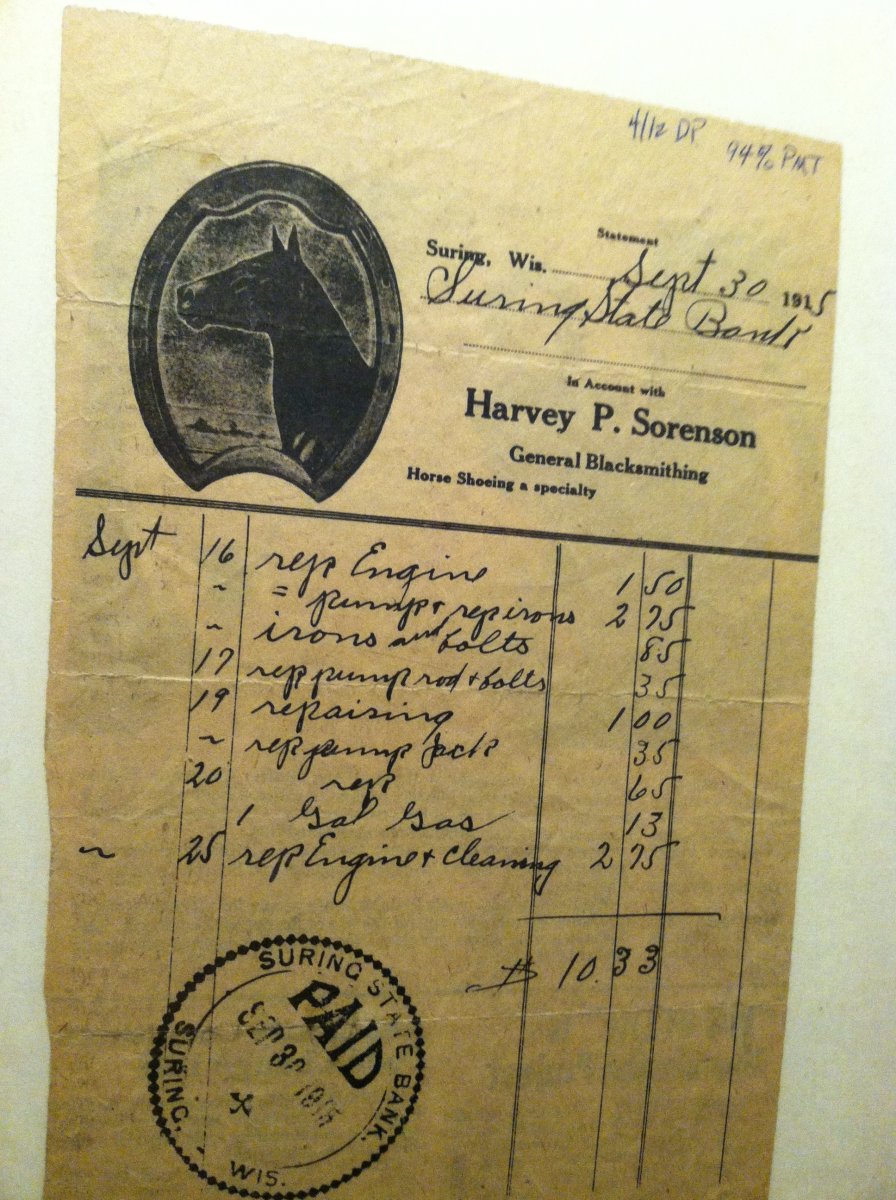 4/12 DP 94% PMT
Statement
Suring, Wis. Sept 30 1915
Suring State Bank
In Account with
Harvey P. Sorenson
General Blacksmithing
Horse Shoeing a specialty
Sept 16 rep Engine 1 50
~ = pump + rep irons 2 75
~ irons and bolts 85
17 rep pump rod + bolts 35
19 repairing 1 00
~ rep pump Jack 35
20 rep 65
1 Gal Gas 13
~ 25 rep Engine + cleaning 2 75
$ 10.33
SURING STATE BANK.
PAID
SEP 30 1915
SURING, WIS.